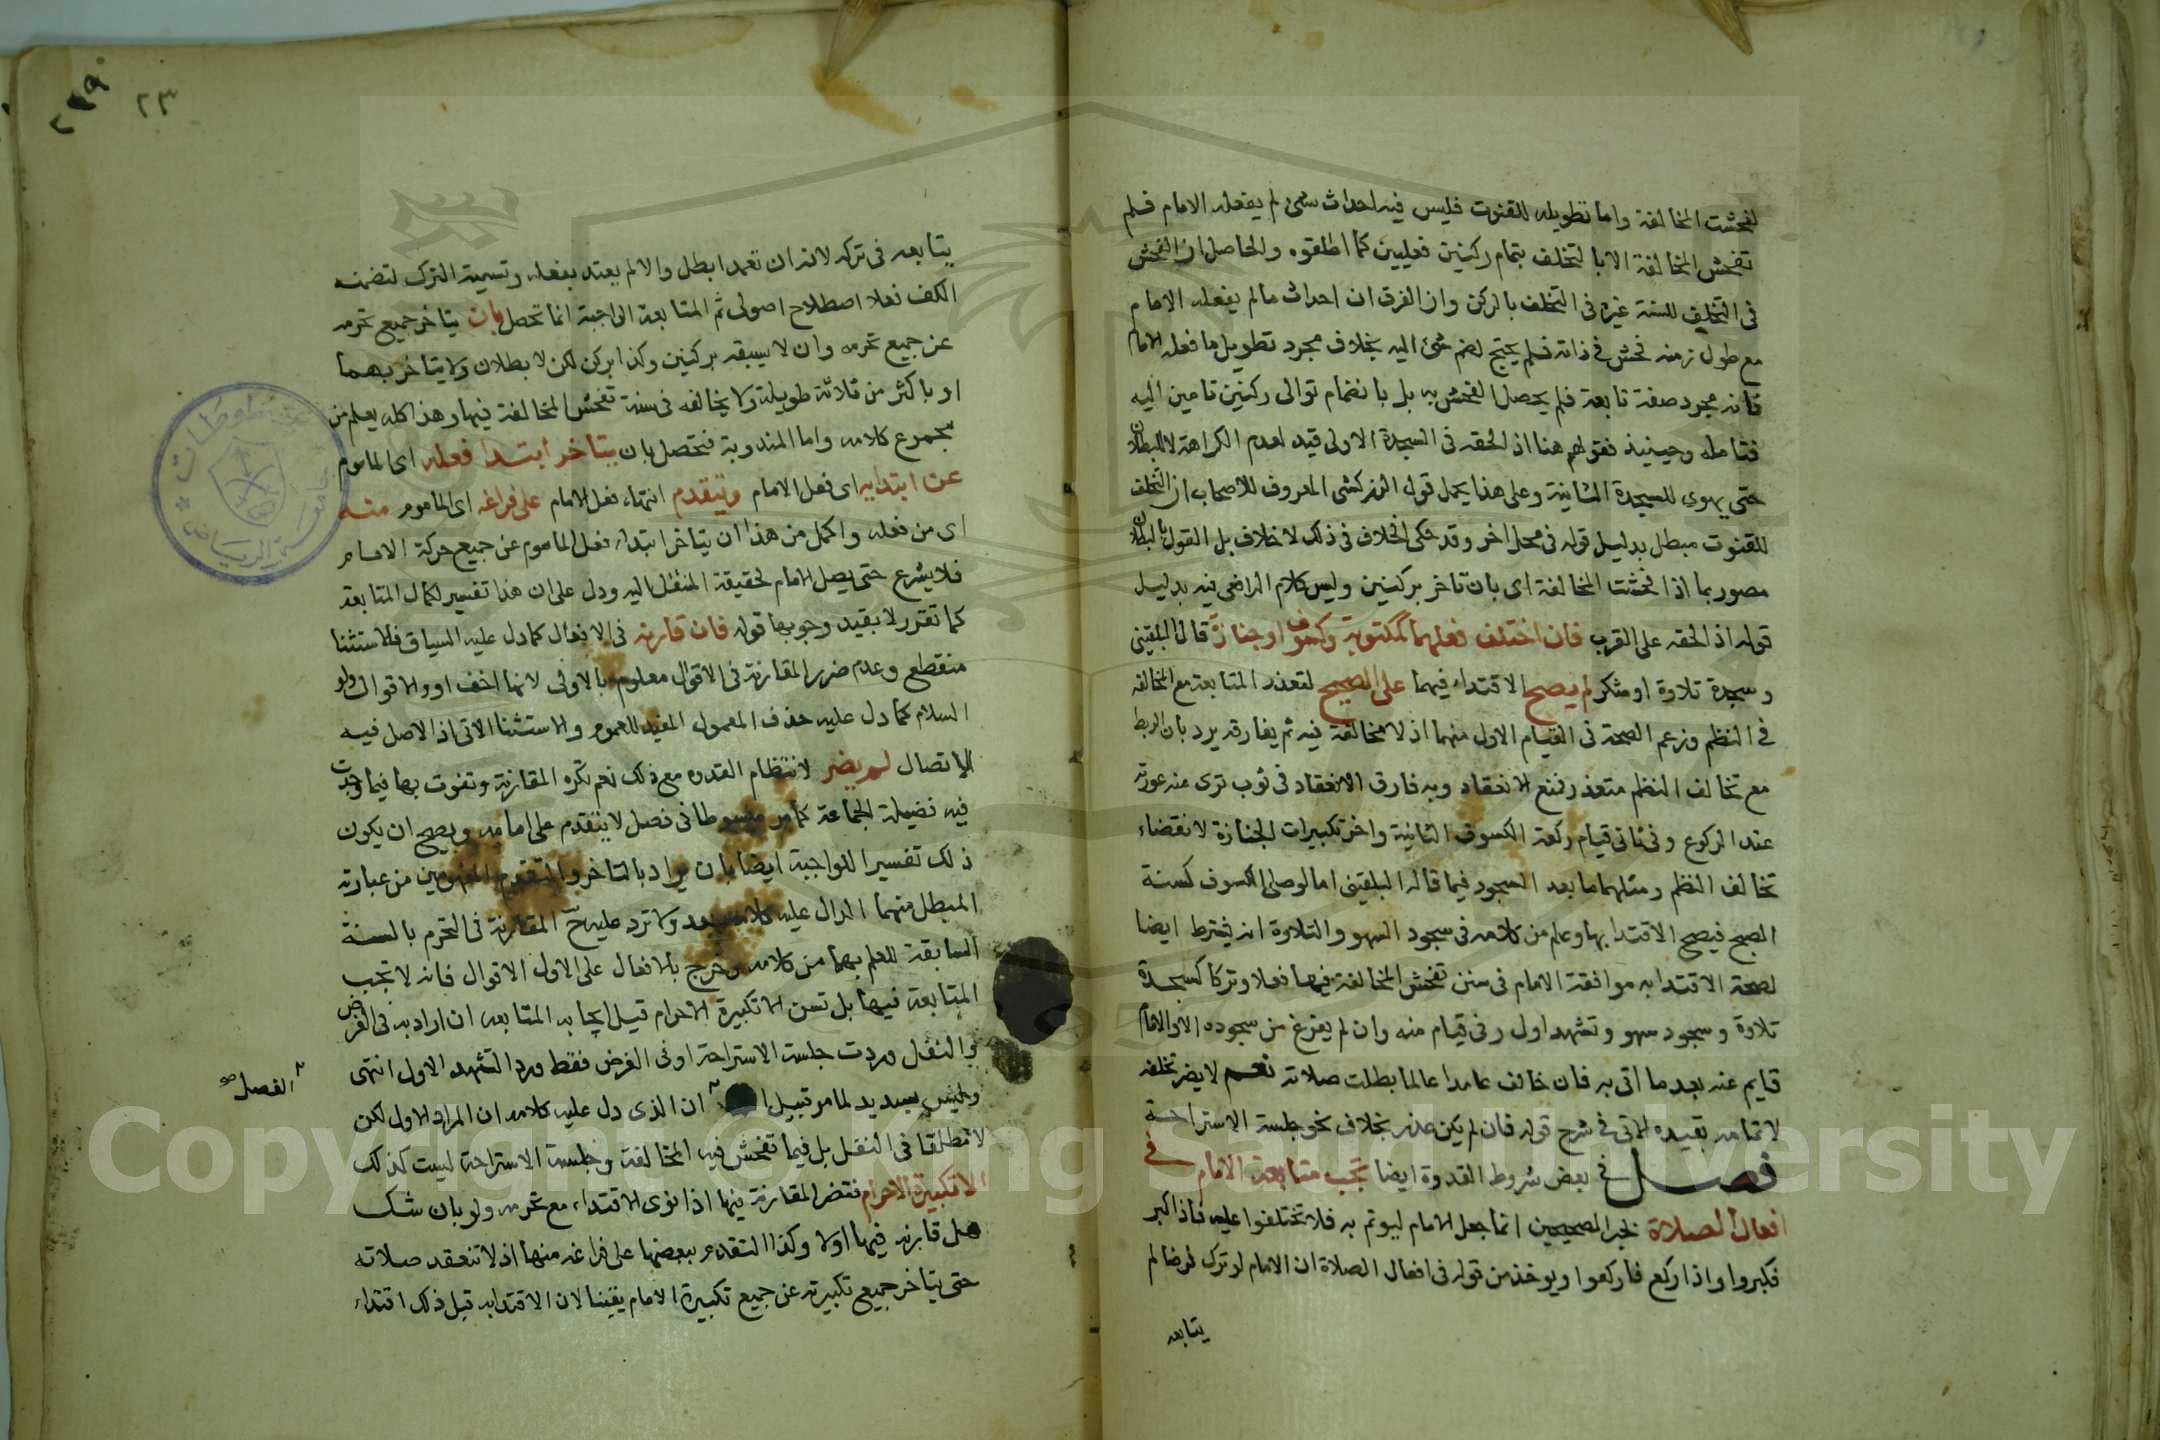 لفحشت المخالفة واما تطويله للقنوت فليس فيه احداث شئ لم يفعله الامام فلم
تفحش المخالفة الا بالتخلف بتمام ركنين فعليين كما اطلقوه والحاصل ان الفحش
فى التخلف للسنة غيره فى التخلف بالركن وان الفرق ان احداث مالم يفعله الامام
مع طول زمنه فحش فى ذاته فلم يحتج لضم شئ اليه بخلاف مجرد تطويل ما فعله الامام
فانه مجرد صفة تابعة فلم يحصل الفحش به بل بانضمام توالى ركنين تامين اليه
فتامله وحينيذ فقولهم هنا اذ الحقه فى السجدة الاولى قيد لعدم الكراهة لا للبطلان
حتى يهوى للسجدة الثانية وعلى هذا يحمل قول الزركشى المعروف للاصحاب ان التخلف
للقنوت مبطل بدليل قوله فى محل اخر وقد حكى الخلاف فى ذلك لا خلاف بل القول بالبطلان
مصور بما اذا فحشت المخالفة اى بان تاخر بركنين وليس كلام الرافعى فيه بدليل
قوله اذ الحقه على القرب فان اختلف فعلهما كمكتوبة وكسوف او جنازة قال البلقينى
وسجدة تلاوة او شكر لم يصح الاقتداء فيهما على الصحيح لتعذر المتابعة مع المخالفة
فى النظم وزعم الصحة فى القيام الاول منهما اذ لا مخالفة فيه ثم يفارقه يرد بان الربط
مع تخالف النظم متعذر فمنع الانعقاد وبه فارق الانعقاد فى ثوب ترى منه عورته
عند الركوع وفى ثانى قيام ركعة الكسوف الثانية واخر تكبيرات الجنازة لانقضاء
تخالف النظم ومثلهما ما بعد السجود فيما قاله البلقينى اما لو صلى الكسوف كسنة
الصبح فيصح الاقتدا بها وعلم من كلامه فى سجود السهو والتلاوة انه يشترط ايضا
لصحة الاقتدا به موافقة الامام فى سنن تفحش المخالفة فيها فعلا وتركا كسجدة
تلاوة وسجود سهو وتشهد اول وفى قيام منه وان لم يفرغ من سجوده الا والامام
قايم عنه بعد ما اتى به فان خالف عامدا عالما بطلت صلاته نعم لا يضر تخلفه
لاتمامه بقيده الاتى فى شرح قوله فان لم يكن عذر بخلاف نحو جلسة الاستراحة
فصل فى بعض شروط القدوة ايضا تجب متابعة الامام فى
افعال الصلاة لخبر الصحيحين انما جعل الامام ليوتم به فلا تختلفوا عليه فاذا كبر
فكبروا واذا ركع فاركعوا ويوخذ من قوله فى افعال الصلاة ان الامام لو ترك فرضا لم
يتابعه
٢٣
يتابعه فى تركه لانه ان تعمد ابطل والا لم يعتد بفعله وتسمية الترك لتضمنه
الكف فعلا اصطلاح اصولى ثم المتابعة الواجبة انما تحصل بان يتاخر جميع تحرمه
عن جميع تحرمه وان لا يسبقه بركنين وكذا بركن لكن لا بطلان ولا يتاخر بهما
او باكثر من ثلاثة طويلة ولا يخالفه فى سنة تفحش المخالفة فيها وهذا كله يعلم من
مجموع كلامه واما المندوبة فتحصل بان يتاخر ابتدا فعله اى الماموم
عن ابتدايه اى فعل الامام ويتقدم انتهاء فعل الامام على فراغه اى الماموم منه
اى من فعله واكمل من هذا ان يتاخر ابتداء فعل الماموم عن جميع حركة الامام
فلا يشرع حتى يصل الامام لحقيقة المنتقل اليه ودل على ان هذا تفسير لكمال المتابعة
كما تقرر لا بقيد وجوبها قوله فان قارنه فى الافعال كما دل عليه السياق فالاستثنا
منقطع وعدم ضرر المقارنة فى الاقوال معلوم بالاولى لانها اخف او والاقوال ولو
السلام كما دل عليه حذف المعمول المفيد للعموم والاستثنا الاتى اذ الاصل فيه
الاتصال لم يضر لانتظام القدوه مع ذلك نعم تكره المقارنة وتفوت بها فيما وجدت
فيه فضيلة الجماعة كما مر مبسوطا فى فصل لا يتقدم على امامه ويصح ان يكون
ذلك تفسيرا للواجبة ايضا بان يراد بالتاخر والتقدم المفهومين من عبارته
المبطل منهما الدال عليه كلامه بعد ولا ترد عليه ح المقارنة فى التحرم بالسنة
السابقة للعلم بها من كلامه وخرج بالافعال على الاول الاقوال فانه لا تجب
المتابعة فيها بل تسن الا تكبيرة الاحرام قيل ايجابه المتابعه ان اراد به فى الفرض
والنفل وردت جلسة الاستراحة او فى الفرض فقط ورد التشهد الاول انتهى
وليس بسديد لما مر قبيل ان الذى دل عليه كلامه ان المراد الاول لكن
الفصل صح
لا مطلقا فى النفل بل فيما تفحش فيه المخالفة وجلسة الاستراحة ليست كذلك
الا تكبيرة الاحرام فتضر المقارنة فيها اذا نوى الاقتداء مع تحرمه ولو بان شك
هل قارنه فيها اولا وكذا التقدم ببعضها على فراغه منها اذ لا تنعقد صلاته
حتى يتاخر جميع تكبيرته عن جميع تكبيرة الامام يقينا لان الاقتدا به قبل ذلك اقتداء
Copyright © King Saud University